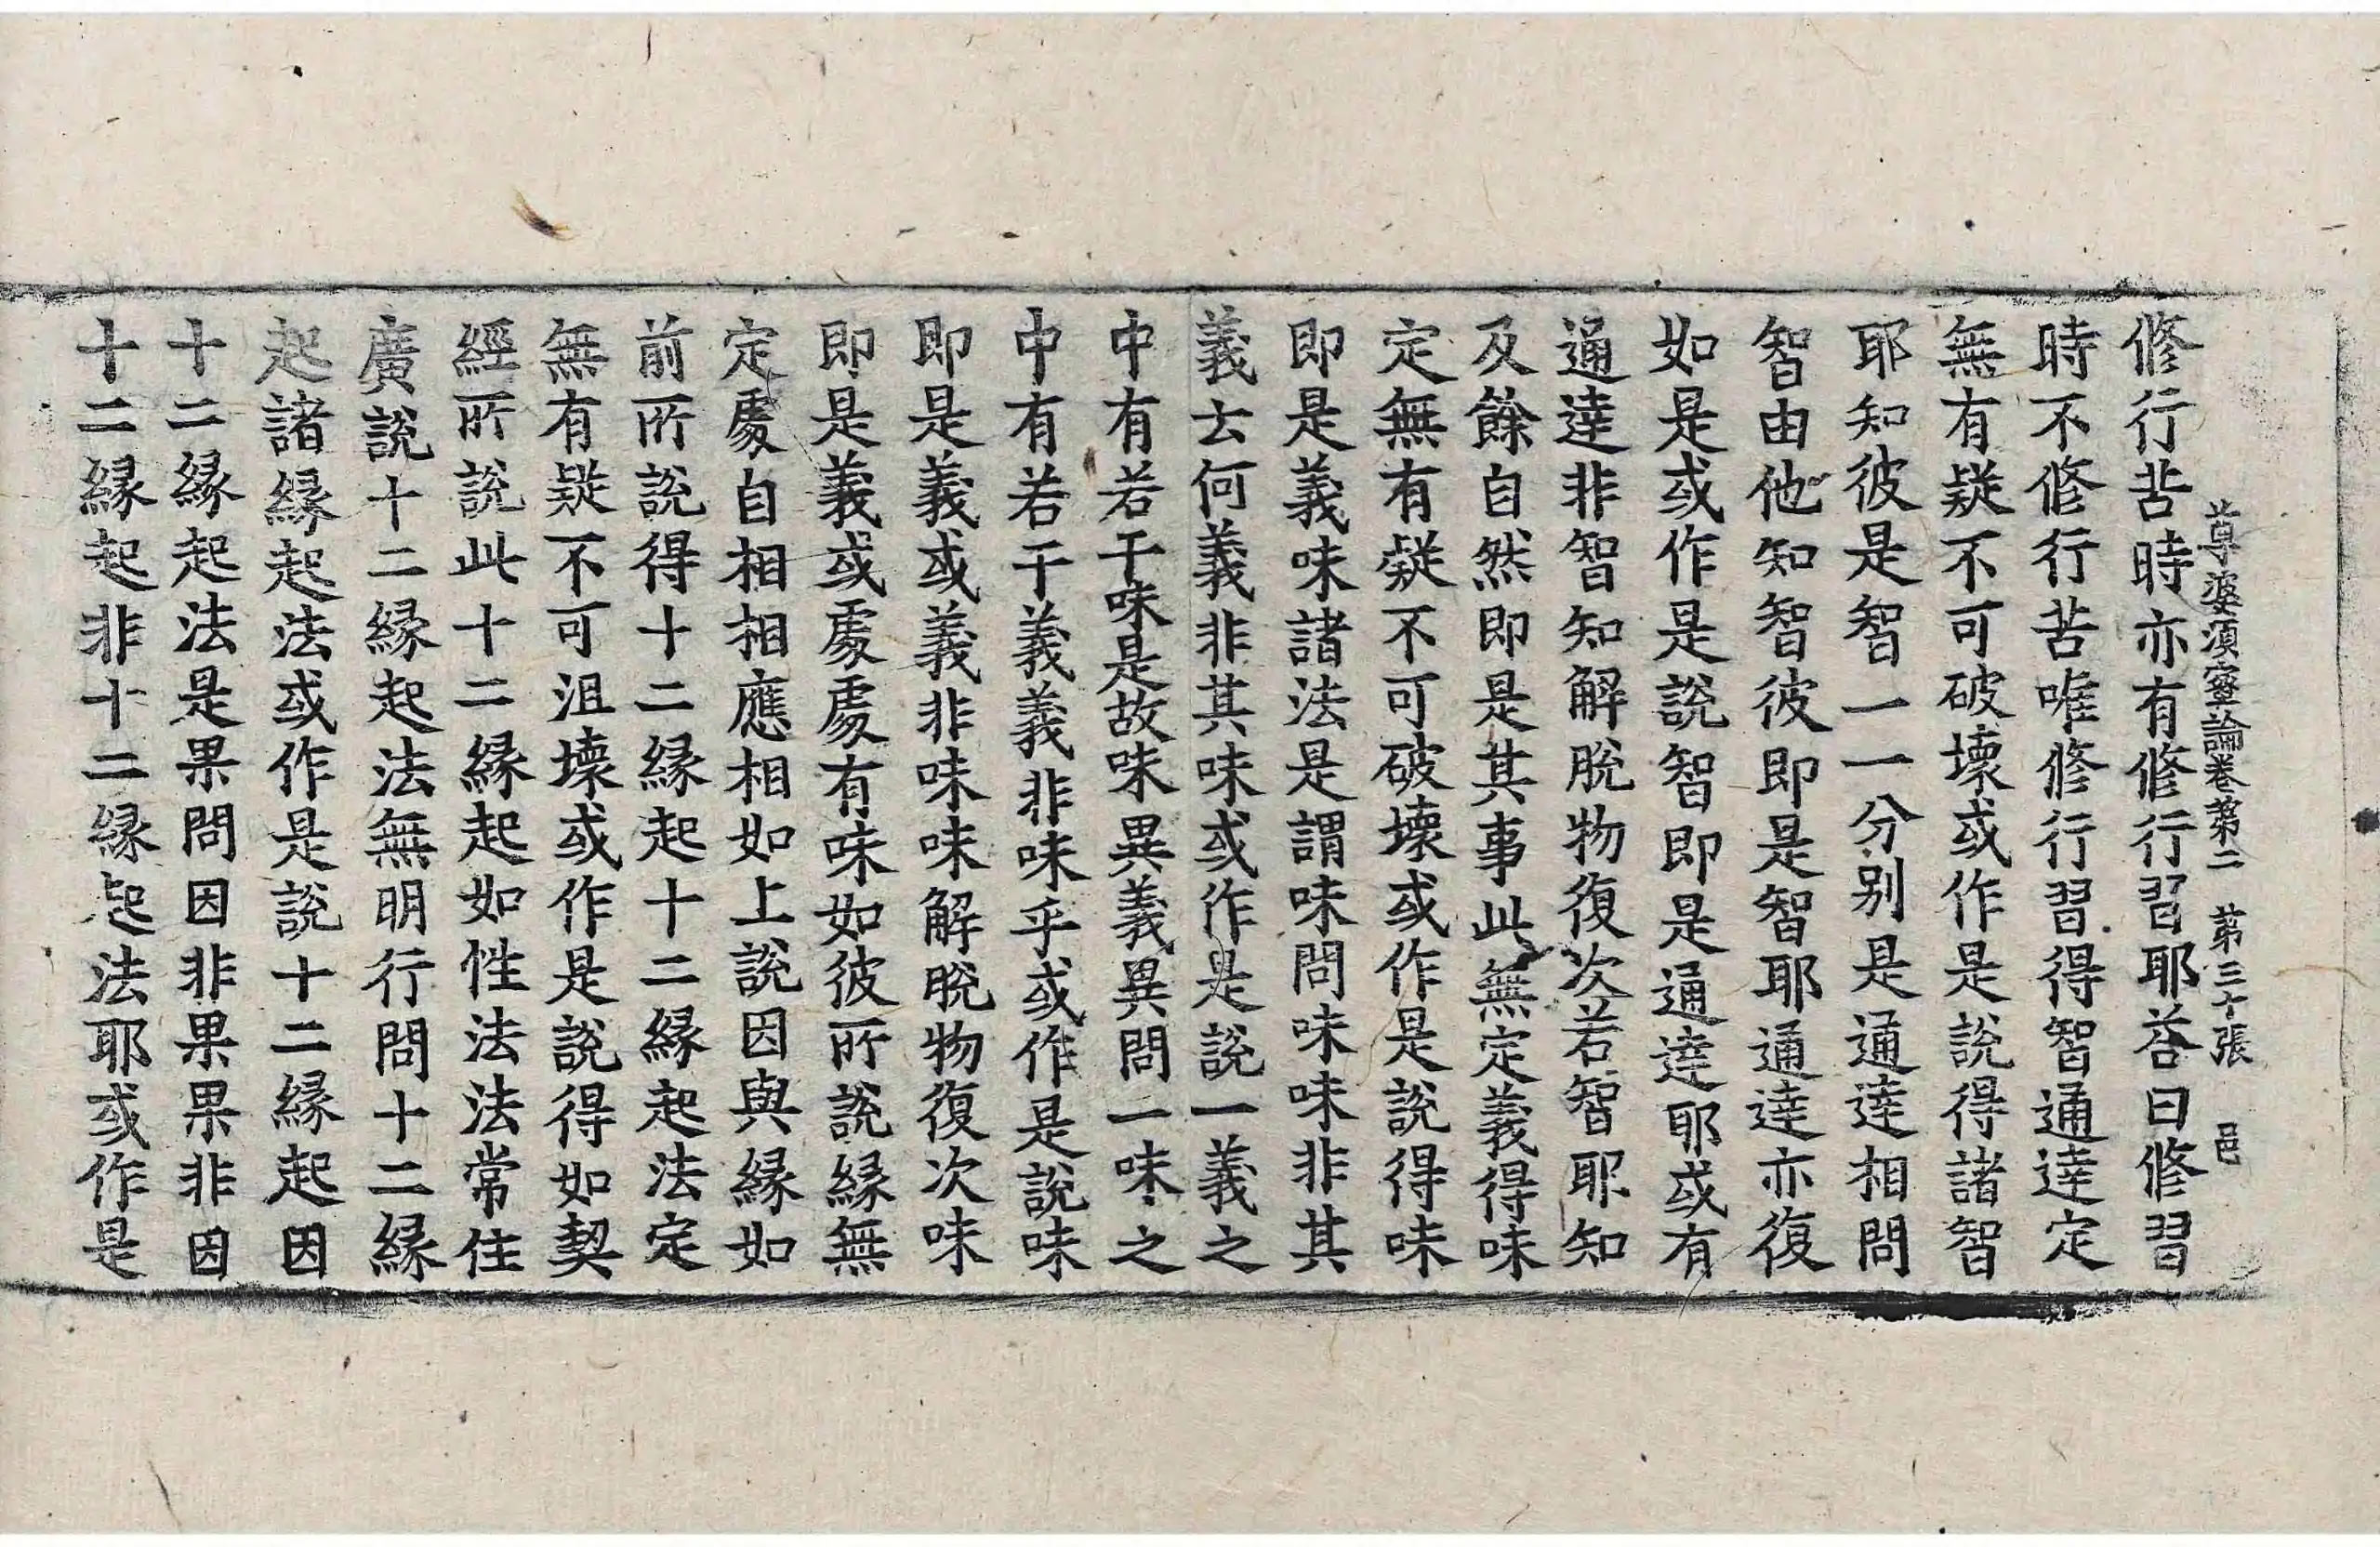 修行苦時亦有修行習耶荅曰修習
尊婆須蜜論卷第二 第三十張 邑
時不修行苦唯修行習得智通達定
無有疑不可破壞或作是說得諸智
耶知彼是智一一分别是通達相問
智由他知智彼即是智耶通達亦復
如是或作是說智即是通達耶或有
通達非智知解脫物復次若智耶知
及餘自然即是其事此無定義得味
定無有疑不可破壞或作是說得味
即是義味諸法是謂味問味味非其
義云何義非其味或作是說一義之
中有若干味是故味異義異問一味之
中有若干義義非味乎或作是說味
即是義或義非味味解脫物復次味
即是義或處處有味如彼所說緣無
定處自相相應相如上說因與緣如
前所說得十二緣起十二緣起法定
無有疑不可沮壞或作是說得如契
經所說此十二緣起如性法法常住
廣說十二緣起法無明行問十二緣
起諸緣起法或作是說十二緣起因
十二緣起法是果問因非果果非因
十二緣起非十二緣起法耶或作是